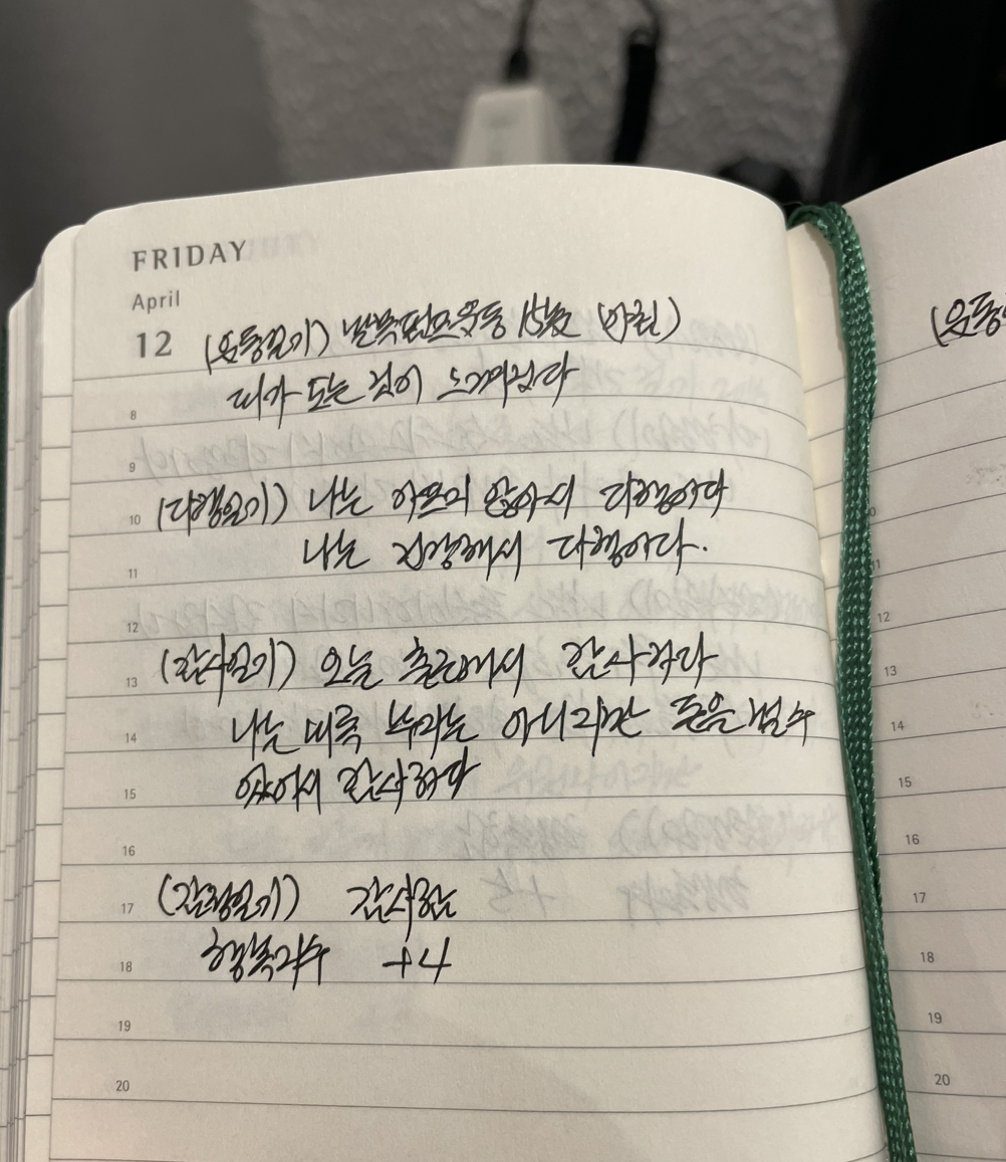 FRIDAY
April
12 (운동일기) 발목펌프운동 15분 (아침)
피가 도는 것이 느껴진다
8
9
10 (다행일기) 나는 아프지 않아서 다행이다
나는 건강해서 다행이다.
11
12
13 (감사일기) 오늘 출근해서 감사하다
14 나는 비록 부자는 아니지만 돈을 벌 수
15 있어서 감사하다
16
17 (감정일기) 감사함
18 행복지수 +4
19
20
(운동
11
12
13
14
15
16
17
18
19
20